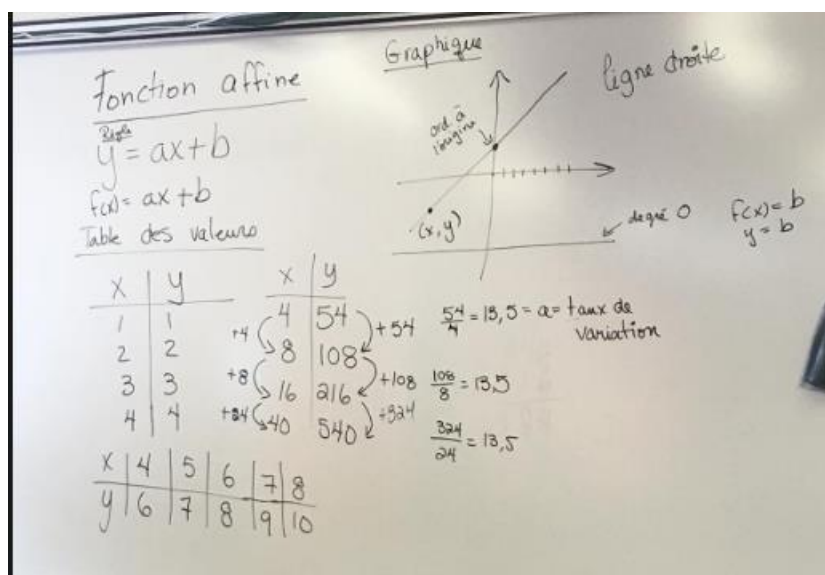 Fonction affine
Règle
y = ax+b
f(x) = ax+b
Table des valeurs
x | y
1 | 1
2 | 2
3 | 3
4 | 4
x | y
4 | 54
8 | 108
16 | 216
40 | 540
+4
+8
+24
+54
+108
+324
54/4 = 13,5 = a = taux de
variation
108/8 = 13,5
324/24 = 13,5
x | 4 | 5 | 6 | 7 | 8
y | 6 | 7 | 8 | 9 | 10
Graphique
ligne droite
ord. à
l'origine
(x, y)
degré 0
f(x) = b
y = b